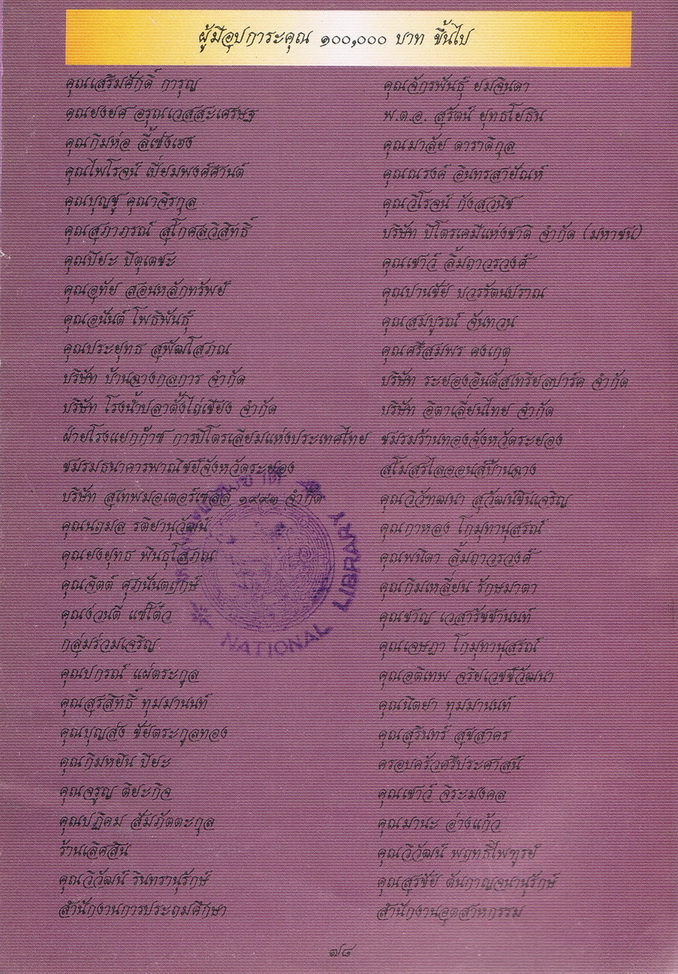 ผู้มีอุปการะคุณ ๑๐๐,๐๐๐ บาท ขึ้นไป
คุณเสริมศักดิ์ การุญ
คุณยงยศ อรุณเวสสะเศรษฐ
คุณกิมห่อ ลี้เซ่งเฮง
คุณไพโรจน์ เปี่ยมพงศ์สานต์
คุณบุญชู คุณาจิรกุล
คุณสุภาภรณ์ สุโกศลวิสิทธิ์
คุณปิยะ ปิตุเตชะ
คุณอุทัย สอนหลักทรัพย์
คุณอนันต์ โพธิพันธุ์
คุณประยุทธ สุพัฒโสภณ
บริษัท บ้านฉางกลการ จำกัด
บริษัท โรงน้ำปลาตั้งไถ่เชียง จำกัด
ฝ่ายโรงแยกก๊าซ การปิโตรเลียมแห่งประเทศไทย
ชมรมธนาคารพาณิชย์จังหวัดระยอง
บริษัท สุเทพมอเตอร์เซลส์ ๑๙๙๑ จำกัด
คุณนฤมล รติยานุวัฒน์
คุณยงยุทธ พันธุโสภณ
คุณจิตต์ ศุภนันตฤกษ์
คุณง่วนตี่ แซ่โต้ว
กลุ่มร่วมเจริญ
คุณปกรณ์ แผ่ตระกูล
คุณสุรสิทธิ์ ทุมมานนท์
คุณบุญส่ง ชัยตระกูลทอง
คุณกิมหยิน ปิยะ
คุณจรูญ ติยะกิจ
คุณปฏิคม สัมภัตตะกุล
ร้านเลิศสิน
คุณวิวัฒน์ รินทรานุรักษ์
สำนักงานการประถมศึกษา
คุณจักรพันธุ์ ยมจินดา
พ.ต.อ. สุรัตน์ ยุทธโยธิน
คุณมาลัย ดาราดิกุล
คุณณรงค์ อินทรสายัณห์
คุณวิโรจน์ กังสวนิช
บริษัท ปิโตรเคมีแห่งชาติ จำกัด (มหาชน)
คุณเชาว์ ลิ้มถาวรวงศ์
คุณปานชัย บวรรัตนปราณ
คุณสมบูรณ์ จันทวน
คุณศรีสมพร คงเกตุ
บริษัท ระยองอินดัสเทรียลปาร์ค จำกัด
บริษัท อิตาเลี่ยนไทย จำกัด
ชมรมร้านทองจังหวัดระยอง
สโมสรไลออนส์บ้านฉาง
คุณวิวัฑฒนา สุวัฒน์ชินเจริญ
คุณกาหลง โกมุทานุสรณ์
คุณพนิดา ลิมถาวรวงศ์
คุณกิมเหลี่ยน รักษมาตา
คุณชาญ เวสารัชชานนท์
คุณเจษฎา โกมุทานุสรณ์
คุณอดิเทพ จรัยเวชช์วัฒนา
คุณนิตยา ทุมมานนท์
คุณสุรินทร์ สุขสาคร
ครอบครัวศรีประศาสน์
คุณเชาว์ จิระมงคล
คุณมานะ อ่างแก้ว
คุณวิวัฒน์ พฤทธิไพฑูรย์
คุณสุรชัย ตันกาญจนานุรักษ์
สำนักงานอุตสาหกรรม
NATIONAL LIBRARY
๗๘